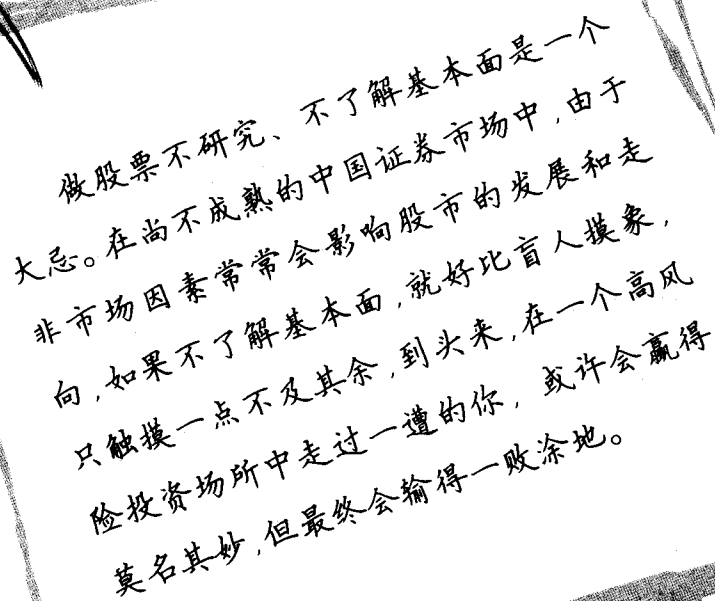 做股票不研究、不了解基本面是一个
大忌。在尚不成熟的中国证券市场中,由于
非市场因素常常会影响股市的发展和走
向,如果不了解基本面,就好比盲人摸象,
只触摸一点不及其余,到头来,在一个高风
险投资场所中走过一遭的你,或许会赢得
莫名其妙,但最终会输得一败涂地。